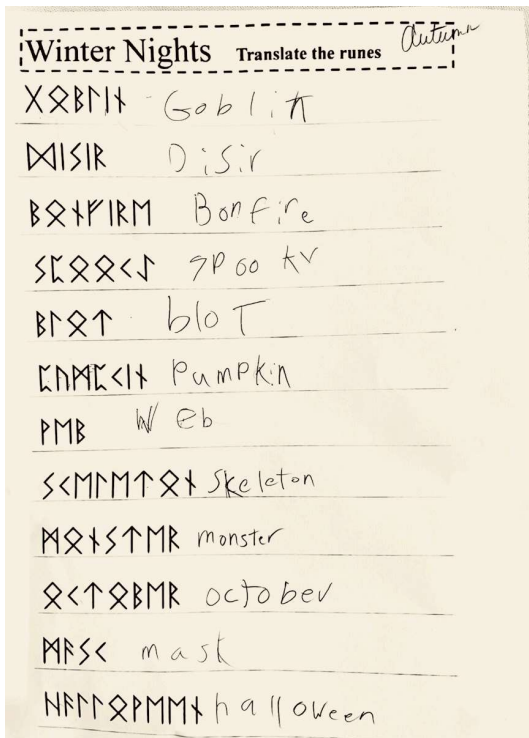 Winter Nights Translate the runes Autumn
ᚷᛟᛒᛚᛁᚾ - Goblin
ᛞᛁᛊᛁᚱ Disir
ᛒᛟᚾᚠᛁᚱᛖ Bonfire
ᛊᛈᛟᛟᚲᛇ SPooky
ᛒᛚᛟᛏ bloT
ᛈᚢᛗᛈᚲᛁᚾ PumPkin
ᚹᛖᛒ WEb
ᛊᚲᛖᛚᛖᛏᛟᚾ Skeleton
ᛗᛟᚾᛊᛏᛖᚱ monster
ᛟᚲᛏᛟᛒᛖᚱ october
ᛗᚨᛊᚲ mask
ᚺᚨᛚᛚᛟᚹᛖᛖᚾ halloween